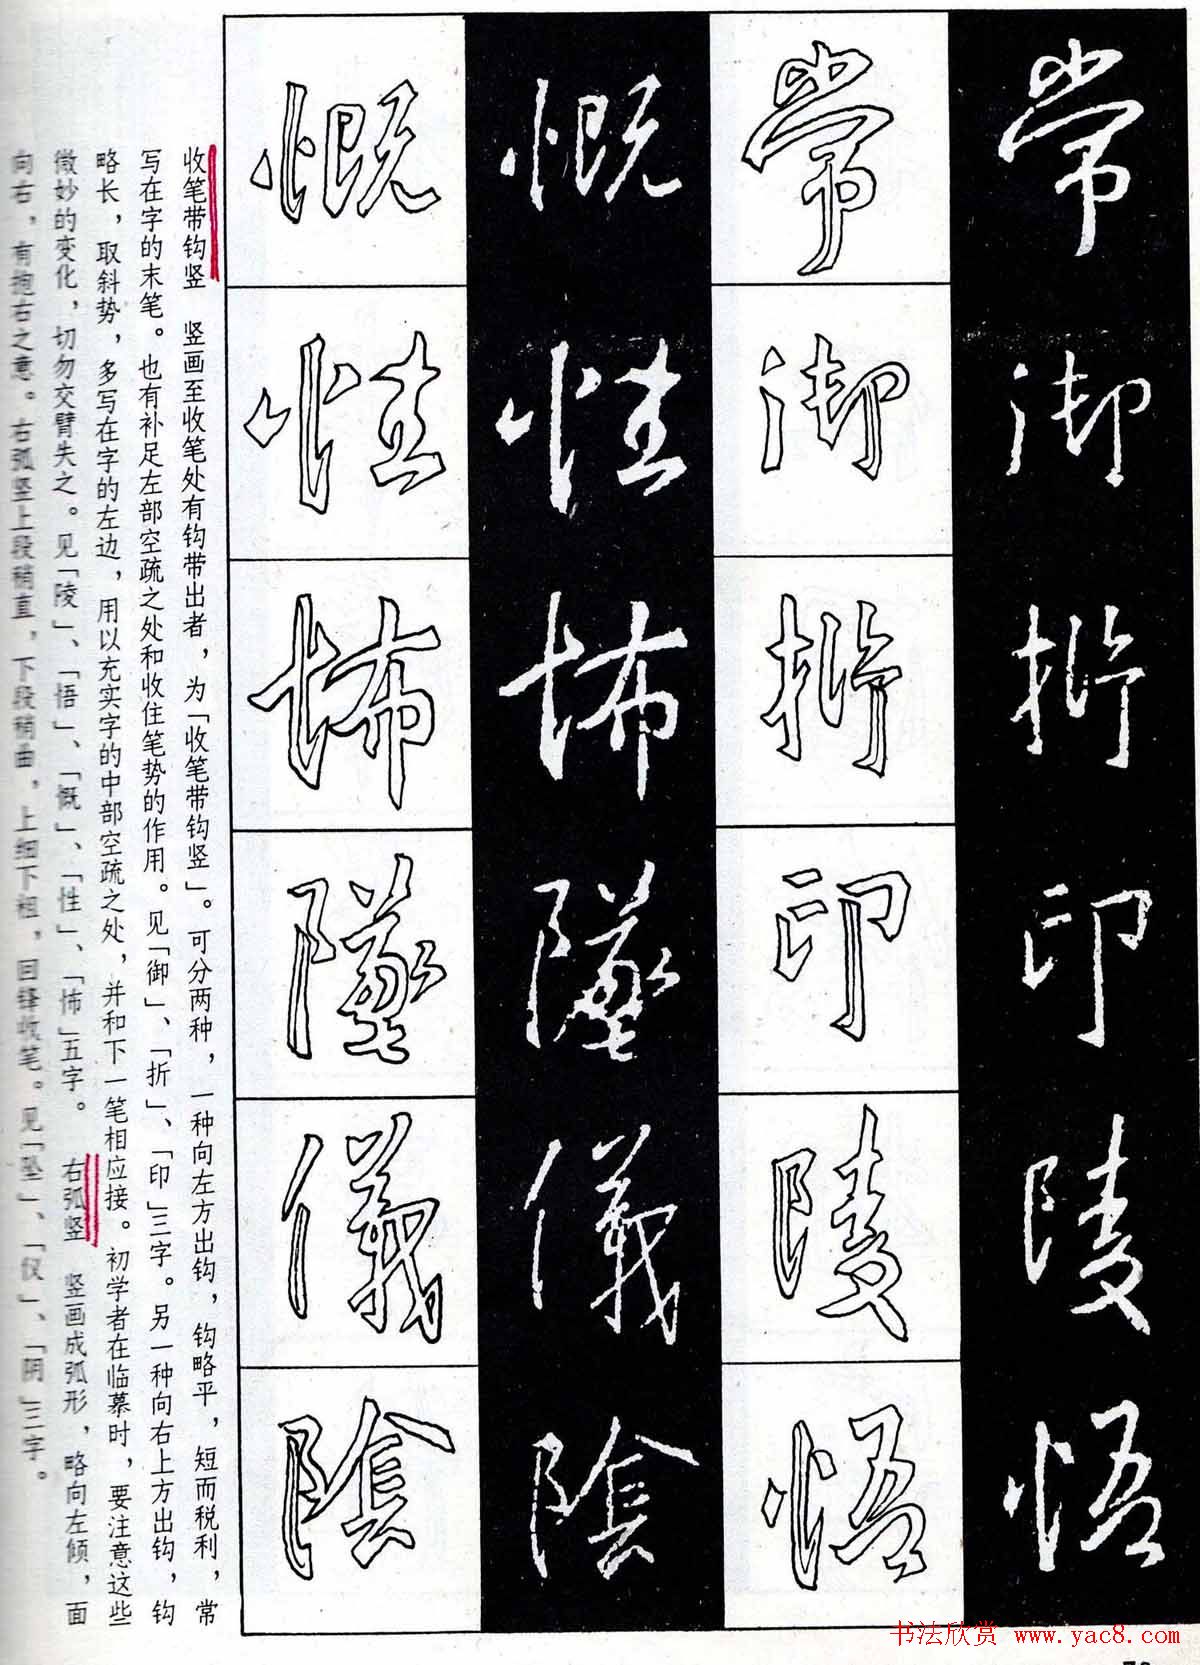 常御折印陵悟
常御折印陵悟
慨性怖墜儀陰
慨性怖墜儀陰
收笔带钩竖　竖画至收笔处有钩带出者，为「收笔带钩竖」。可分两种，一种向左方出钩，钩略平，短而税利，常
写在字的末笔。也有补足左部空疏之处和收住笔势的作用。见「御」、「折」、「印」三字。另一种向右上方出钩，钩
略长，取斜势，多写在字的左边，用以充实字的中部空疏之处，并和下一笔相应接。初学者在临慕时，要注意这些
微妙的变化，切勿交臂失之。见「陵」、「悟」、「慨」、「性」、「怖」五字。　右弧竖　竖画成弧形，略向左倾，面
向右，有抱右之意。右弧竖上段稍直，下段稍曲，上细下粗，回锋收笔。见「坠」、「仪」、「阴」三字。
书法欣赏 www.yac8.com